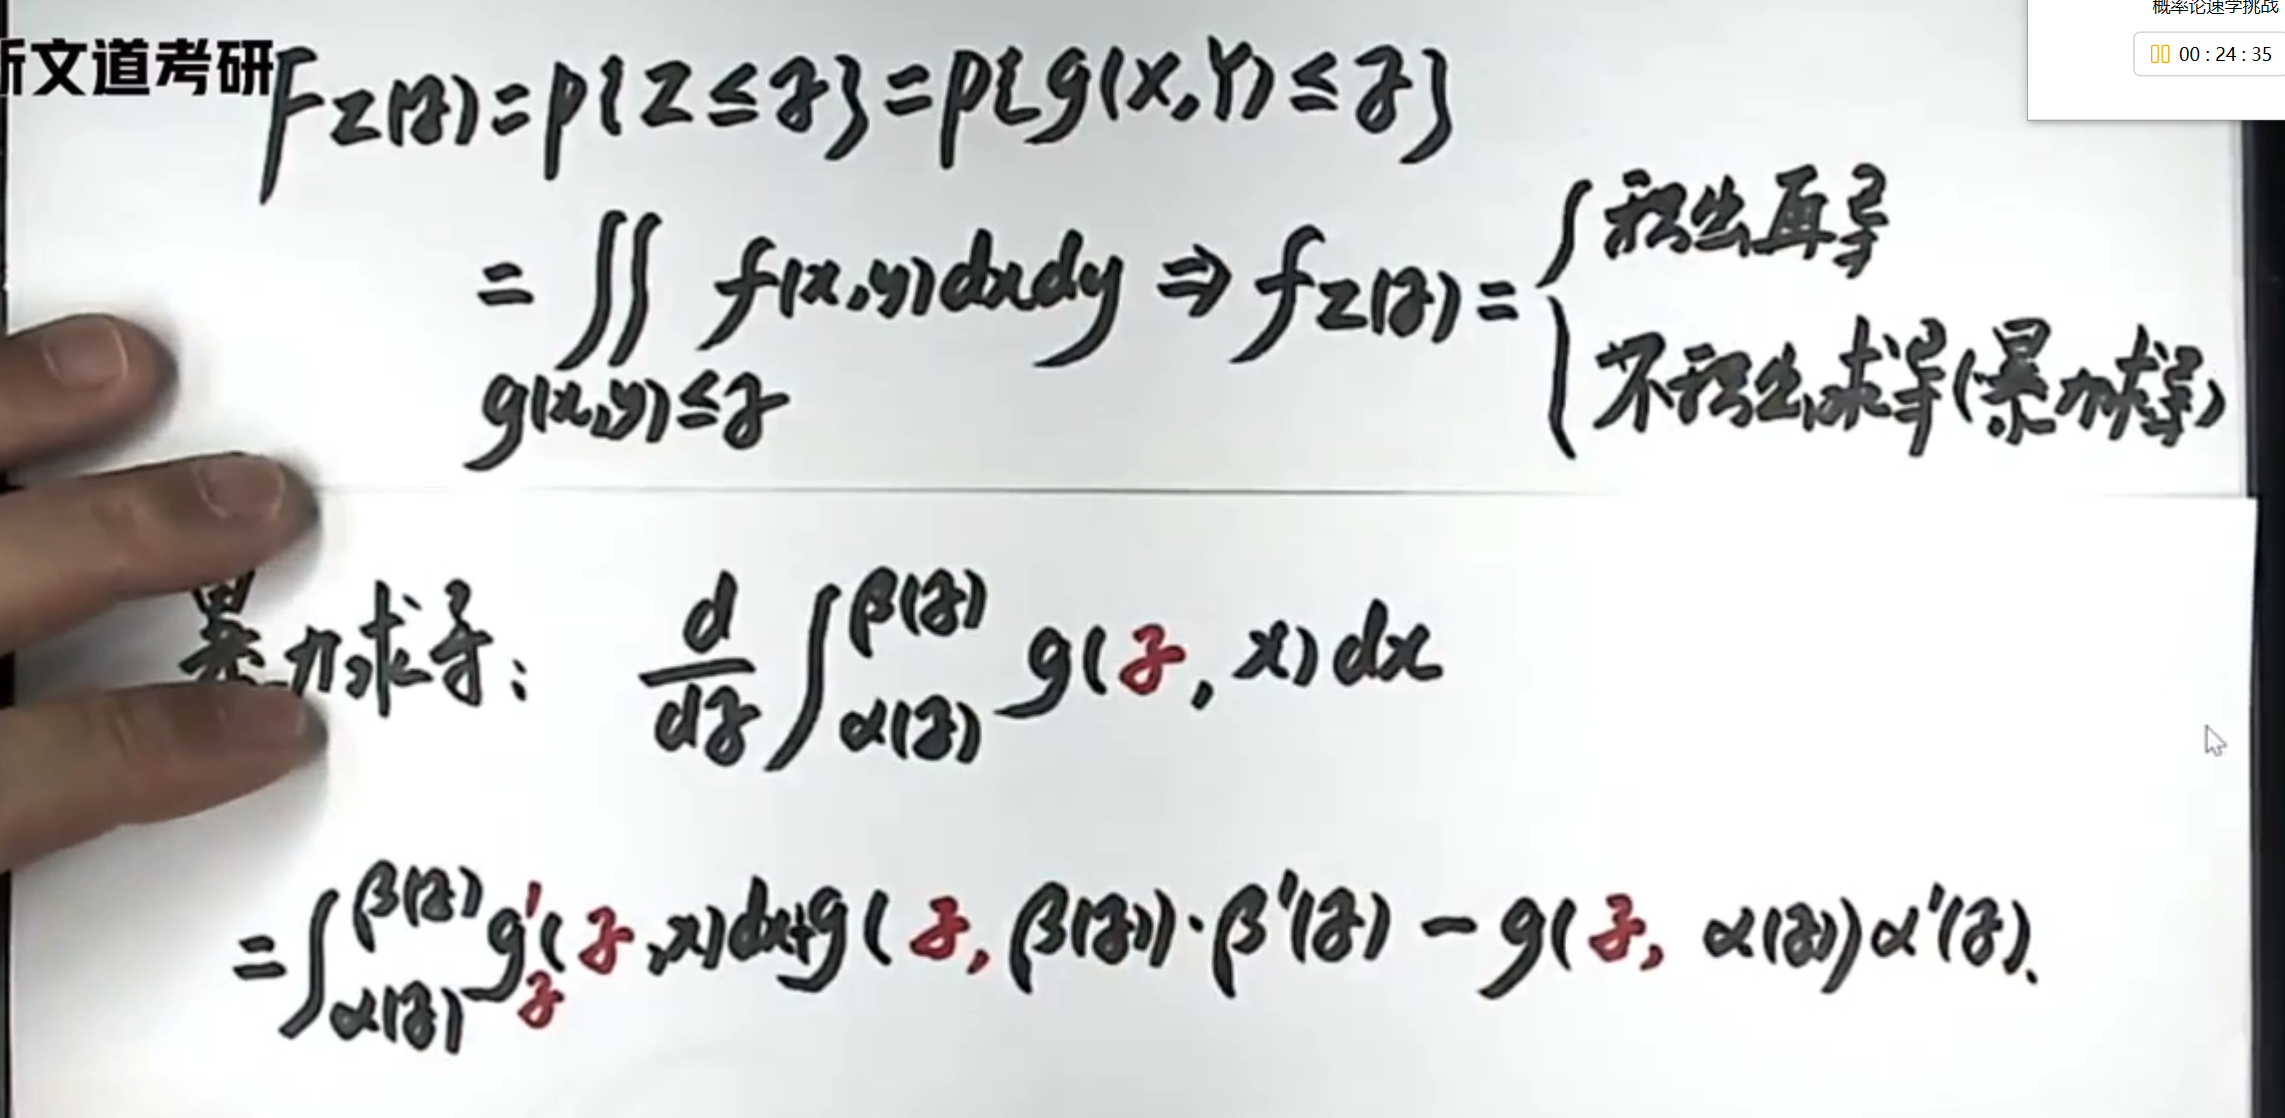 概率论速学挑战
00:24:35
新文道考研
F_Z(z)=P{Z≤z}=P{g(X,Y)≤z}
=∬ f(x,y)dxdy ⇒ f_Z(z)= { 积出再导
g(x,y)≤z
不积出,求导(暴力求导)
暴力求导: d/dz ∫_{α(z)}^{β(z)} g(z,x)dx
=∫_{α(z)}^{β(z)} g'_z(z,x)dx+g(z,β(z))·β'(z)-g(z,α(z))α'(z).